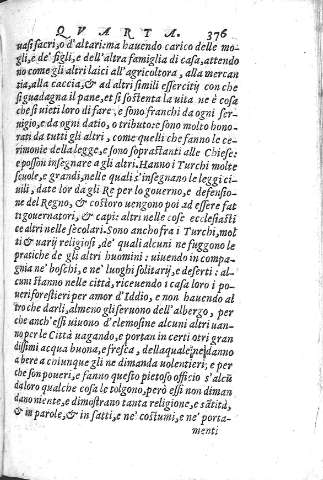 QVARTA. 376
uasi sacri, o d'altari: ma hauendo carico delle mo-
gli, e de' figli, e dell'altra famiglia di casa, attendo
no come gli altri laici all'agricoltora, alla mercan
tia, alla caccia, & ad altri simili essercitÿ con che
si guadagna il pane, et si sostenta la uita ne è cosa
che si uieti loro di fare, e sono franchi da ogni ser-
uigio, e da ogni datio, o tributo: e sono molto hono-
rati da tutti gli altri, come quelli che fanno le ce-
rimonie della legge, e sono soprastanti alle Chiese:
e posson insegnare a gli altri. Hanno i Turchi molte
scuole, e grandi, nelle quali s'insegnano le leggi ci-
uili, date lor da gli Re per lo gouerno, e defensio-
ne del Regno, & costoro uengono poi ad essere fat
ti gouernatori, & capi: altri nelle cose ecclesiasti
ce altri nelle secolari. Sono anchosra i Turchi, mol
ti & uarÿ religiosi, de' quali alcuni ne fuggono le
pratiche de gli altri huomini: uiuendo in compa-
gnia ne' boschi, e ne' luoghi solitarÿ, e deserti: al-
cuni stanno nelle città, riceuendo i casa loro i po-
ueri forestieri per amor d'Iddio, e non hauendo al
tro che darli, almeno gli seruono dell'albergo, per
che anch'essi uiuono d'elemosine alcuni altri uan-
no per le Città uagando, e portan in certi otri gran
dissimi acqua buona, e fresca, della quale ne danno
a bere a ciunque gli ne dimanda uolentieri; e per
che son poueri, e fanno questo pietoso officio s'alcū
da loro qualche cosa le tolgono, però essi non diman
dano niente, e dimostrano tanta religione, e sātità,
& in parole, & in fatti, e ne' costumi, e ne' porta-
menti